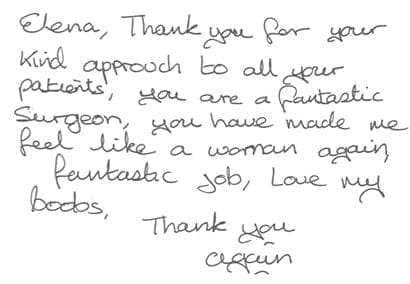 Elena, Thank you for your
kind approuch to all your
patients, you are a fantastic
Surgeon, you have made me
feel like a woman again,
fantastic job, Love my
boobs,
Thank you
again